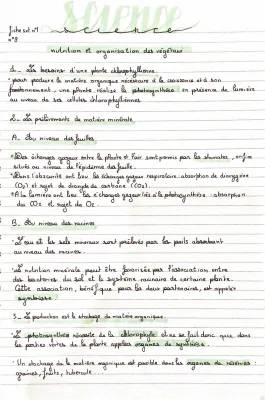 science
fiche svt n°1
n°8
science
nutrition et organisation des végétaux
1_ Les besoins d'une plante chlorophyllienne.
• pour produire la matière organique nécessaire à la croissance et à son
fonctionnement, une plante réalise la photosynthèse en présence de lumière
au niveau de ses cellules chlorophylliennes
2_ Les prélèvements de matière minérale
A_ Au niveau des feuilles
• Des échanges gazeux entre la plante et l'air sont permis par les stomates,
situés au niveau de l'épiderme des feuilles.
• Dans l'obscurité ont lieu les échanges gazeux respiratoires absorption de dioxygène
(O2) et rejet de dioxyde de carbone (CO2).
• A la lumière ont lieu les échanges gazeux liés à la photosynthèse : absorption
du CO2 et rejet du O2
B_ Au niveau des racines
• L'eau et les sels minéraux sont prélevés par les poils absorbant
au niveau des racines
• La nutrition minérale peut être favorisée par l'association entre
des bactéries du sol et le système racinaire de certaine plante.
Cette association, bénéfique pour les deux partenaires, est appelée
symbiose
3_ La production et le stockage de matière organique.
• La photosynthèse nécessite de la chlorophylle et ne se fait donc que dans
les parties vertes de la plante appelées organes de synthèses.
• Un stockage de la matière organique est possible dans les organes de réserves :
graines, fruits, tubercule